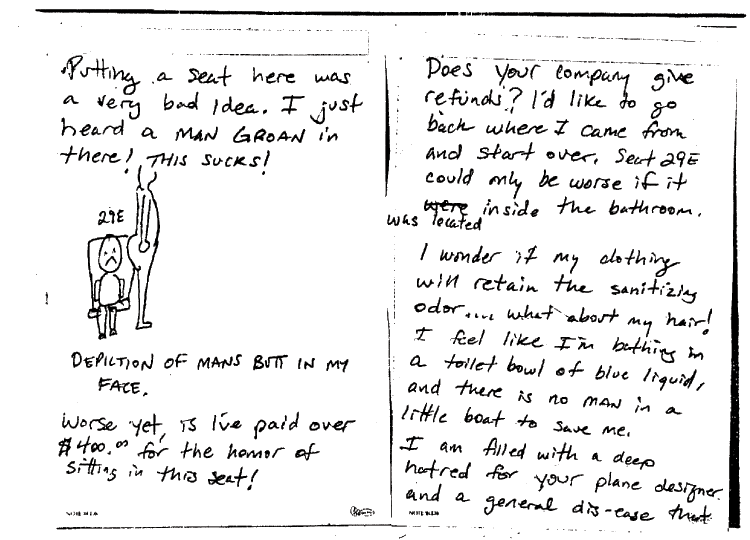 Putting a seat here was
a very bad idea. I just
heard a MAN GROAN in
there! THIS SUCKS!
29E
DEPICTION OF MANS BUTT IN MY
FACE.
Worse yet, is I've paid over
$400.00 for the honor of
sitting in this seat!
Does your company give
refunds? I'd like to go
back where I came from
and start over. Seat 29E
could only be worse if it
were inside the bathroom.
was located
I wonder if my clothing
will retain the sanitizing
odor.... what about my hair!
I feel like I'm bathing in
a toilet bowl of blue liquid,
and there is no man in a
little boat to save me.
I am filled with a deep
hatred for your plane designer
and a general dis-ease that